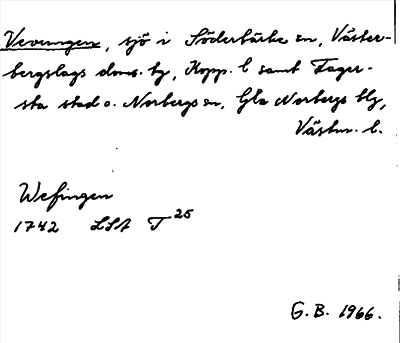 Vevungen, sjö i Söderbärke sn, Väster-
bergslags doms. hg, Kopp. l samt Fager-
sta stad o. Norbergs sn, Gla Norbergs blg,
Västm. l.
Wefingen
1742 LSA T 25
G.B. 1966.